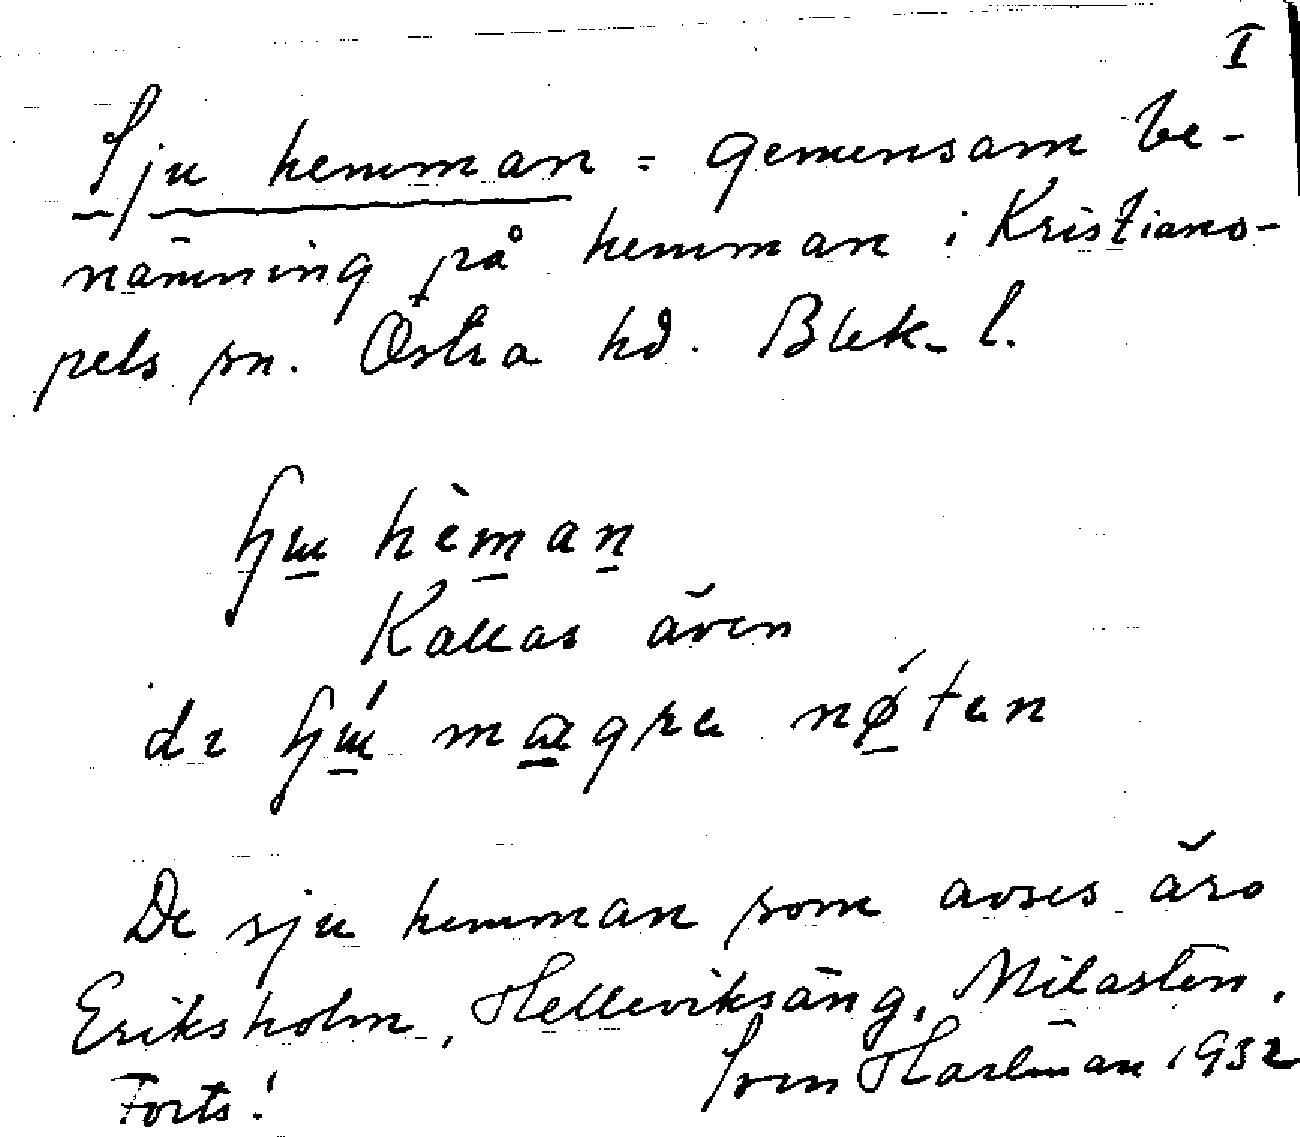 I
Sju hemman = gemensam be-
nämning på hemman i Kristiano-
pels sn. Östra hd. Blek. l.
hèman
Kallas även
de magra nǿten
De sju hemman som avses äro
Eriksholm, Helleviksäng, Milasten,
Forts! Sven Hartman 1932